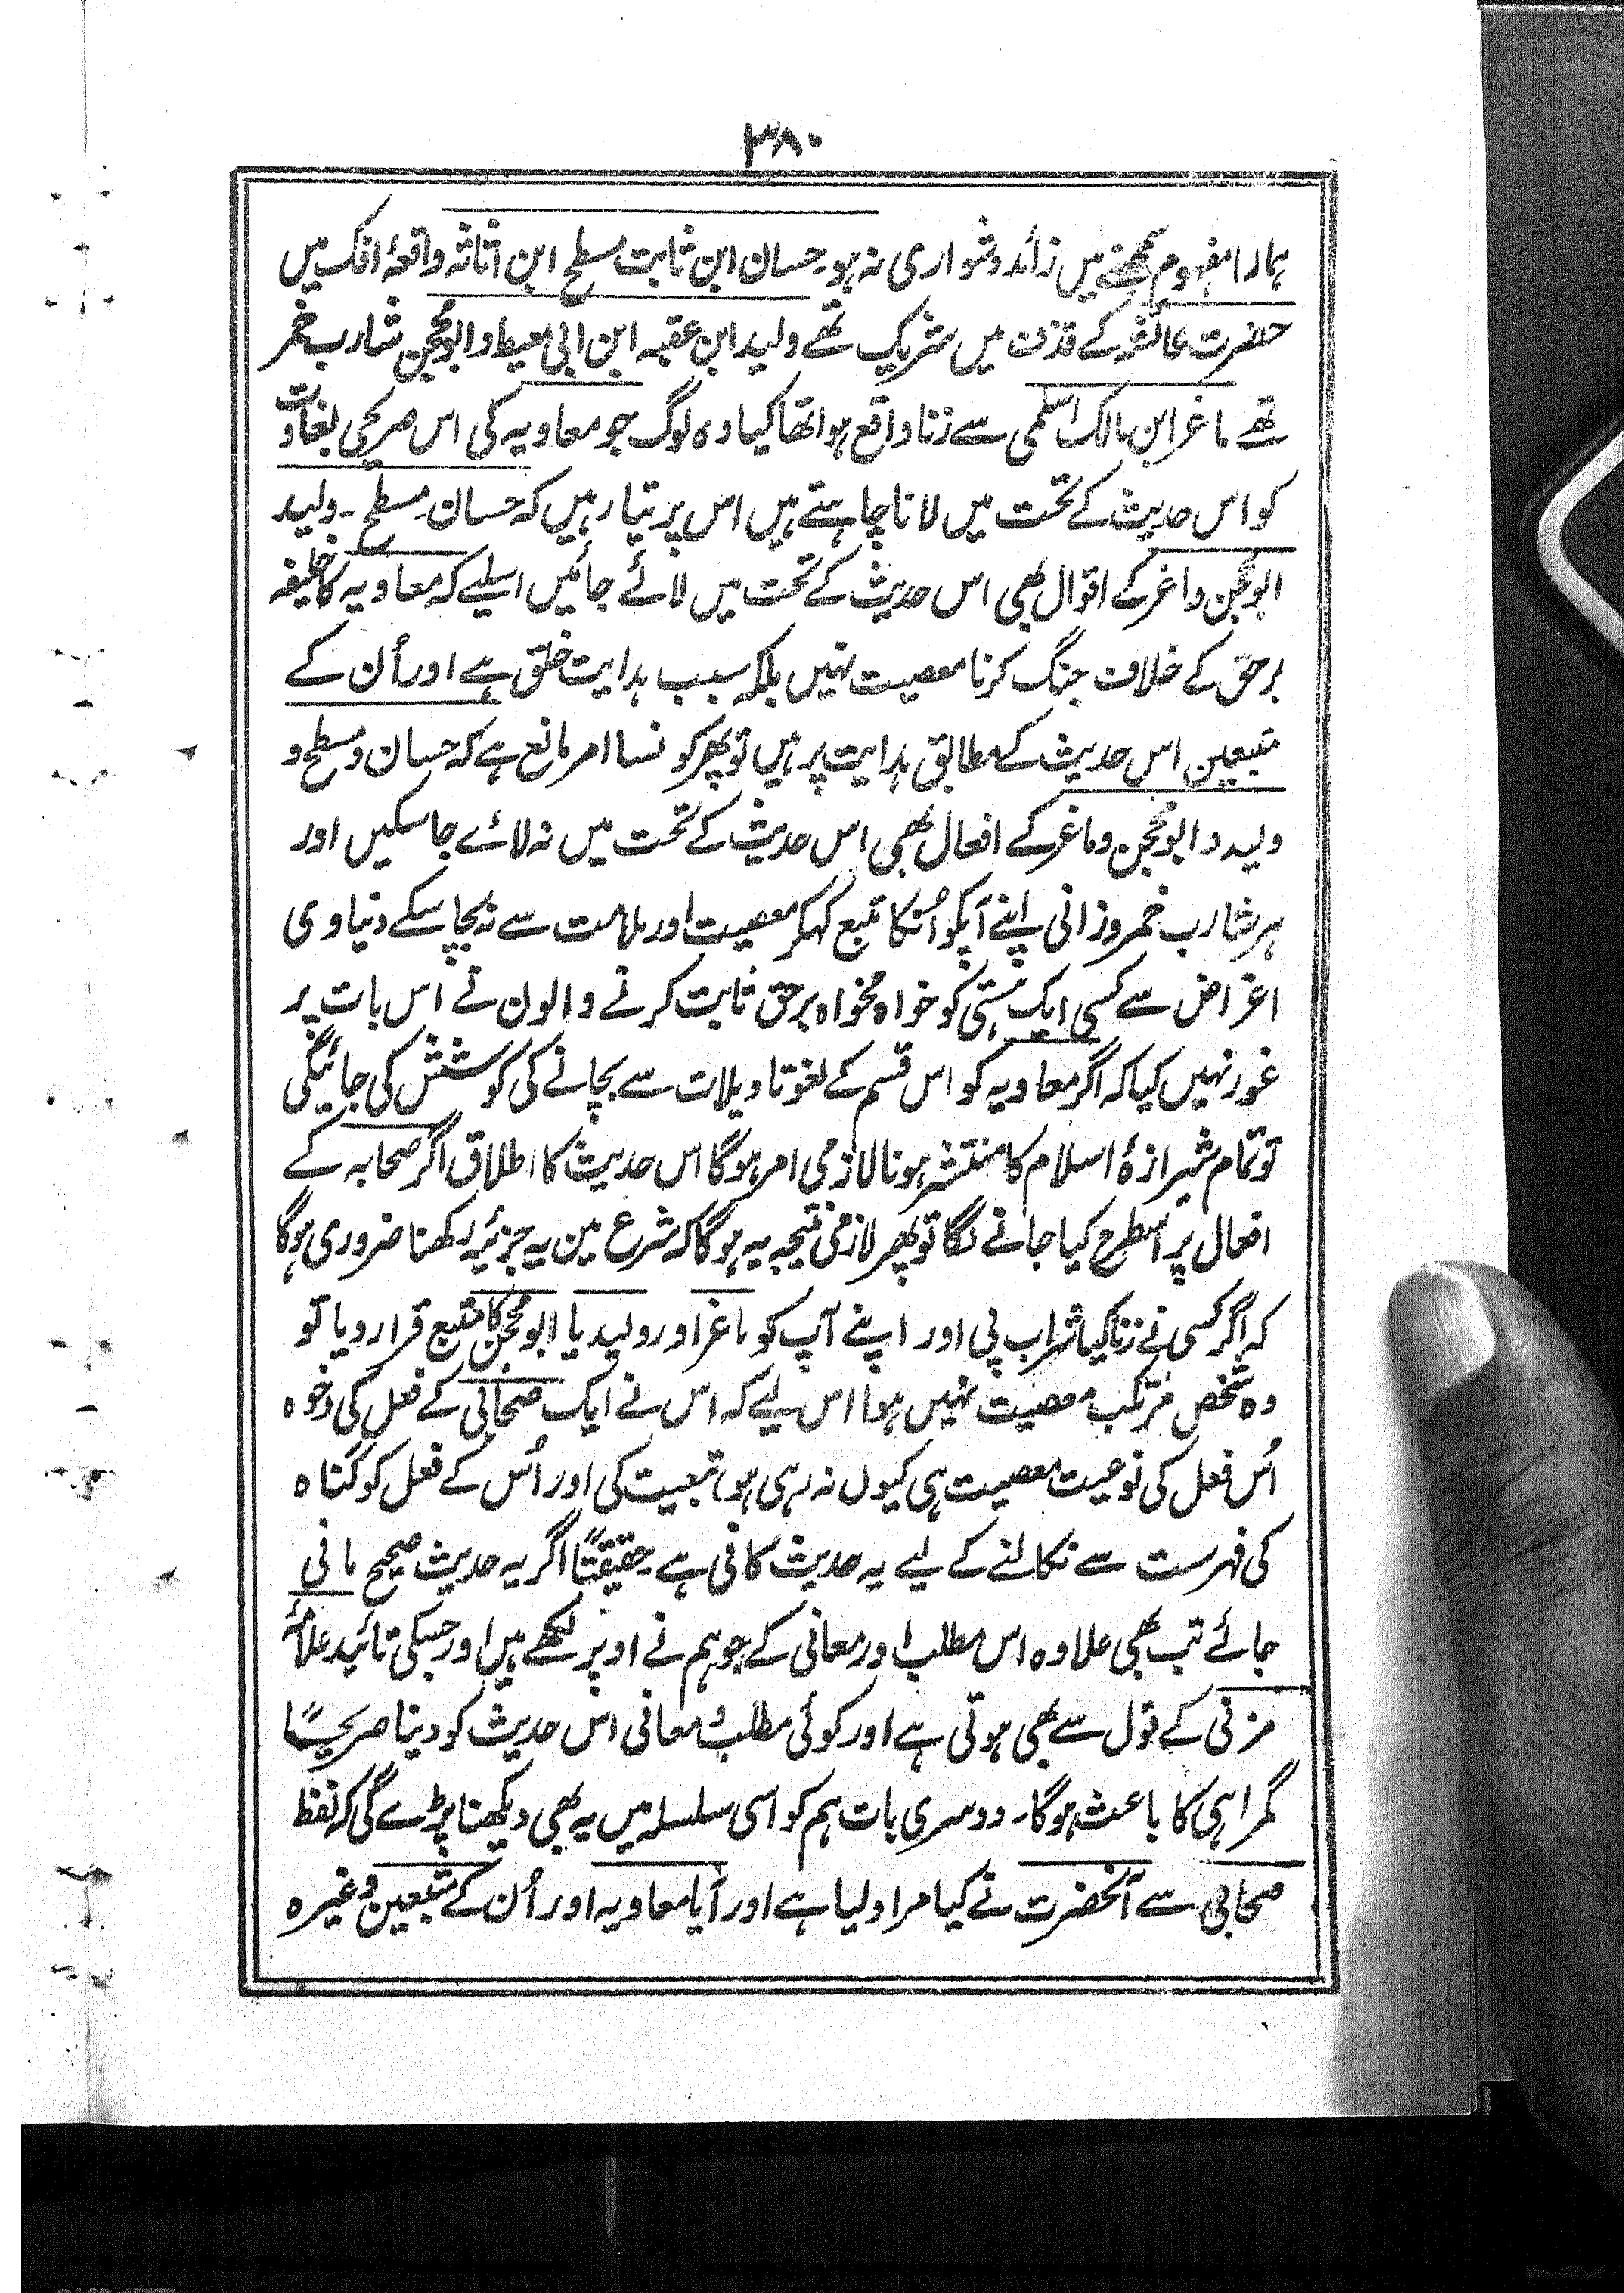 ۳۸۰
ہمارا مفہوم سمجھنے میں زائد دشواری نہ ہو۔ حسان ابن ثابت مسطح ابن اثاثہ واقعۂ افک میں
حضرت عائشہ کے قذف میں شریک تھے ولید ابن عقبہ ابن ابی معیط و ابو محجن شارب خمر
تھے ماغر ابن مالک اسلمی سے زنا واقع ہوا تھا کیا وہ لوگ جو معاویہ کی اس صریحی بغاوت
کو اس حدیث کے تحت میں لانا چاہتے ہیں اس پر تیار ہیں کہ حسان۔ مسطح ۔ ولید
ابو محجن و اغر کے اقوال بھی اس حدیث کے تحت میں لائے جائیں اسلیے کہ معاویہ کا خلیفہ
برحق کے خلاف جنگ کرنا معصیت نہیں بلکہ سبب ہدایت خلق ہے اور اُن کے
متبعین اس حدیث کے مطابق ہدایت پر ہیں تو پھر کونسا امر مانع ہے کہ حسان و مسطح و
ولید و ابو محجن و ماغر کے افعال بھی اس حدیث کے تحت میں نہ لائے جا سکیں اور
ہر شارب خمر و زانی اپنے آپکو اُنکا تبع کہکر معصیت اور ملامت سے نہ بچا سکے دنیاوی
اغراض سے کسی ایک ہستی کو خواہ مخواہ برحق ثابت کرنے والون نے اس بات پر
غور نہیں کیا کہ اگر معاویہ کو اس قسم کے لغو تاویلات سے بچانے کی کوشش کی جائیگی
تو تمام شیرازۂ اسلام کا منتشر ہونا لازمی امر ہوگا اس حدیث کا اطلاق اگر صحابہ کے
افعال پر اسطرح کیا جانے لگا تو پھر لازمی نتیجہ یہ ہوگا کہ شرع مین یہ جزئیہ لکھنا ضروری ہوگا
کہ اگر کسی نے زنا کیا شراب پی اور اپنے آپ کو ماغر اور ولید یا ابو محجن کا متبع قرار دیا تو
وہ شخص مرتکب معصیت نہیں ہوا اس لیے کہ اس نے ایک صحابی کے فعل کی (خواہ
اُس فعل کی نوعیت معصیت ہی کیوں نہ رہی ہو) تبعیت کی اور اُس کے فعل کو گناہ
کی فہرست سے نکالنے کے لیے یہ حدیث کافی ہے۔ حقیقتًا اگر یہ حدیث صحیح مانی
جائے تب بھی علاوہ اس مطلب اور معانی کے جو ہم نے اوپر لکھے ہیں اور جسکی تائید علامۂ
مزنی کے قول سے بھی ہوتی ہے اور کوئی مطلب و معانی اس حدیث کو دینا صریحًا
گمراہی کا باعث ہوگا۔ دوسری بات ہم کو اسی سلسلہ میں یہ بھی دیکھنا پڑے گی کہ لفظ
صحابی سے آنحضرت نے کیا مراد لیا ہے اور آیا معاویہ اور اُن کے متبعین وغیرہ